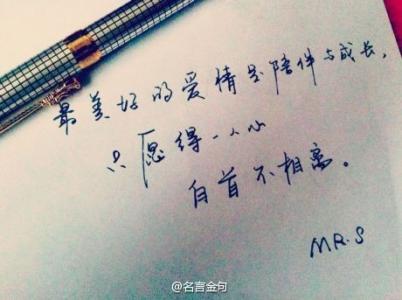 最美好的爱情是陪伴与成长,
只愿得一人心
白首不相离。
MR.S
@名言金句